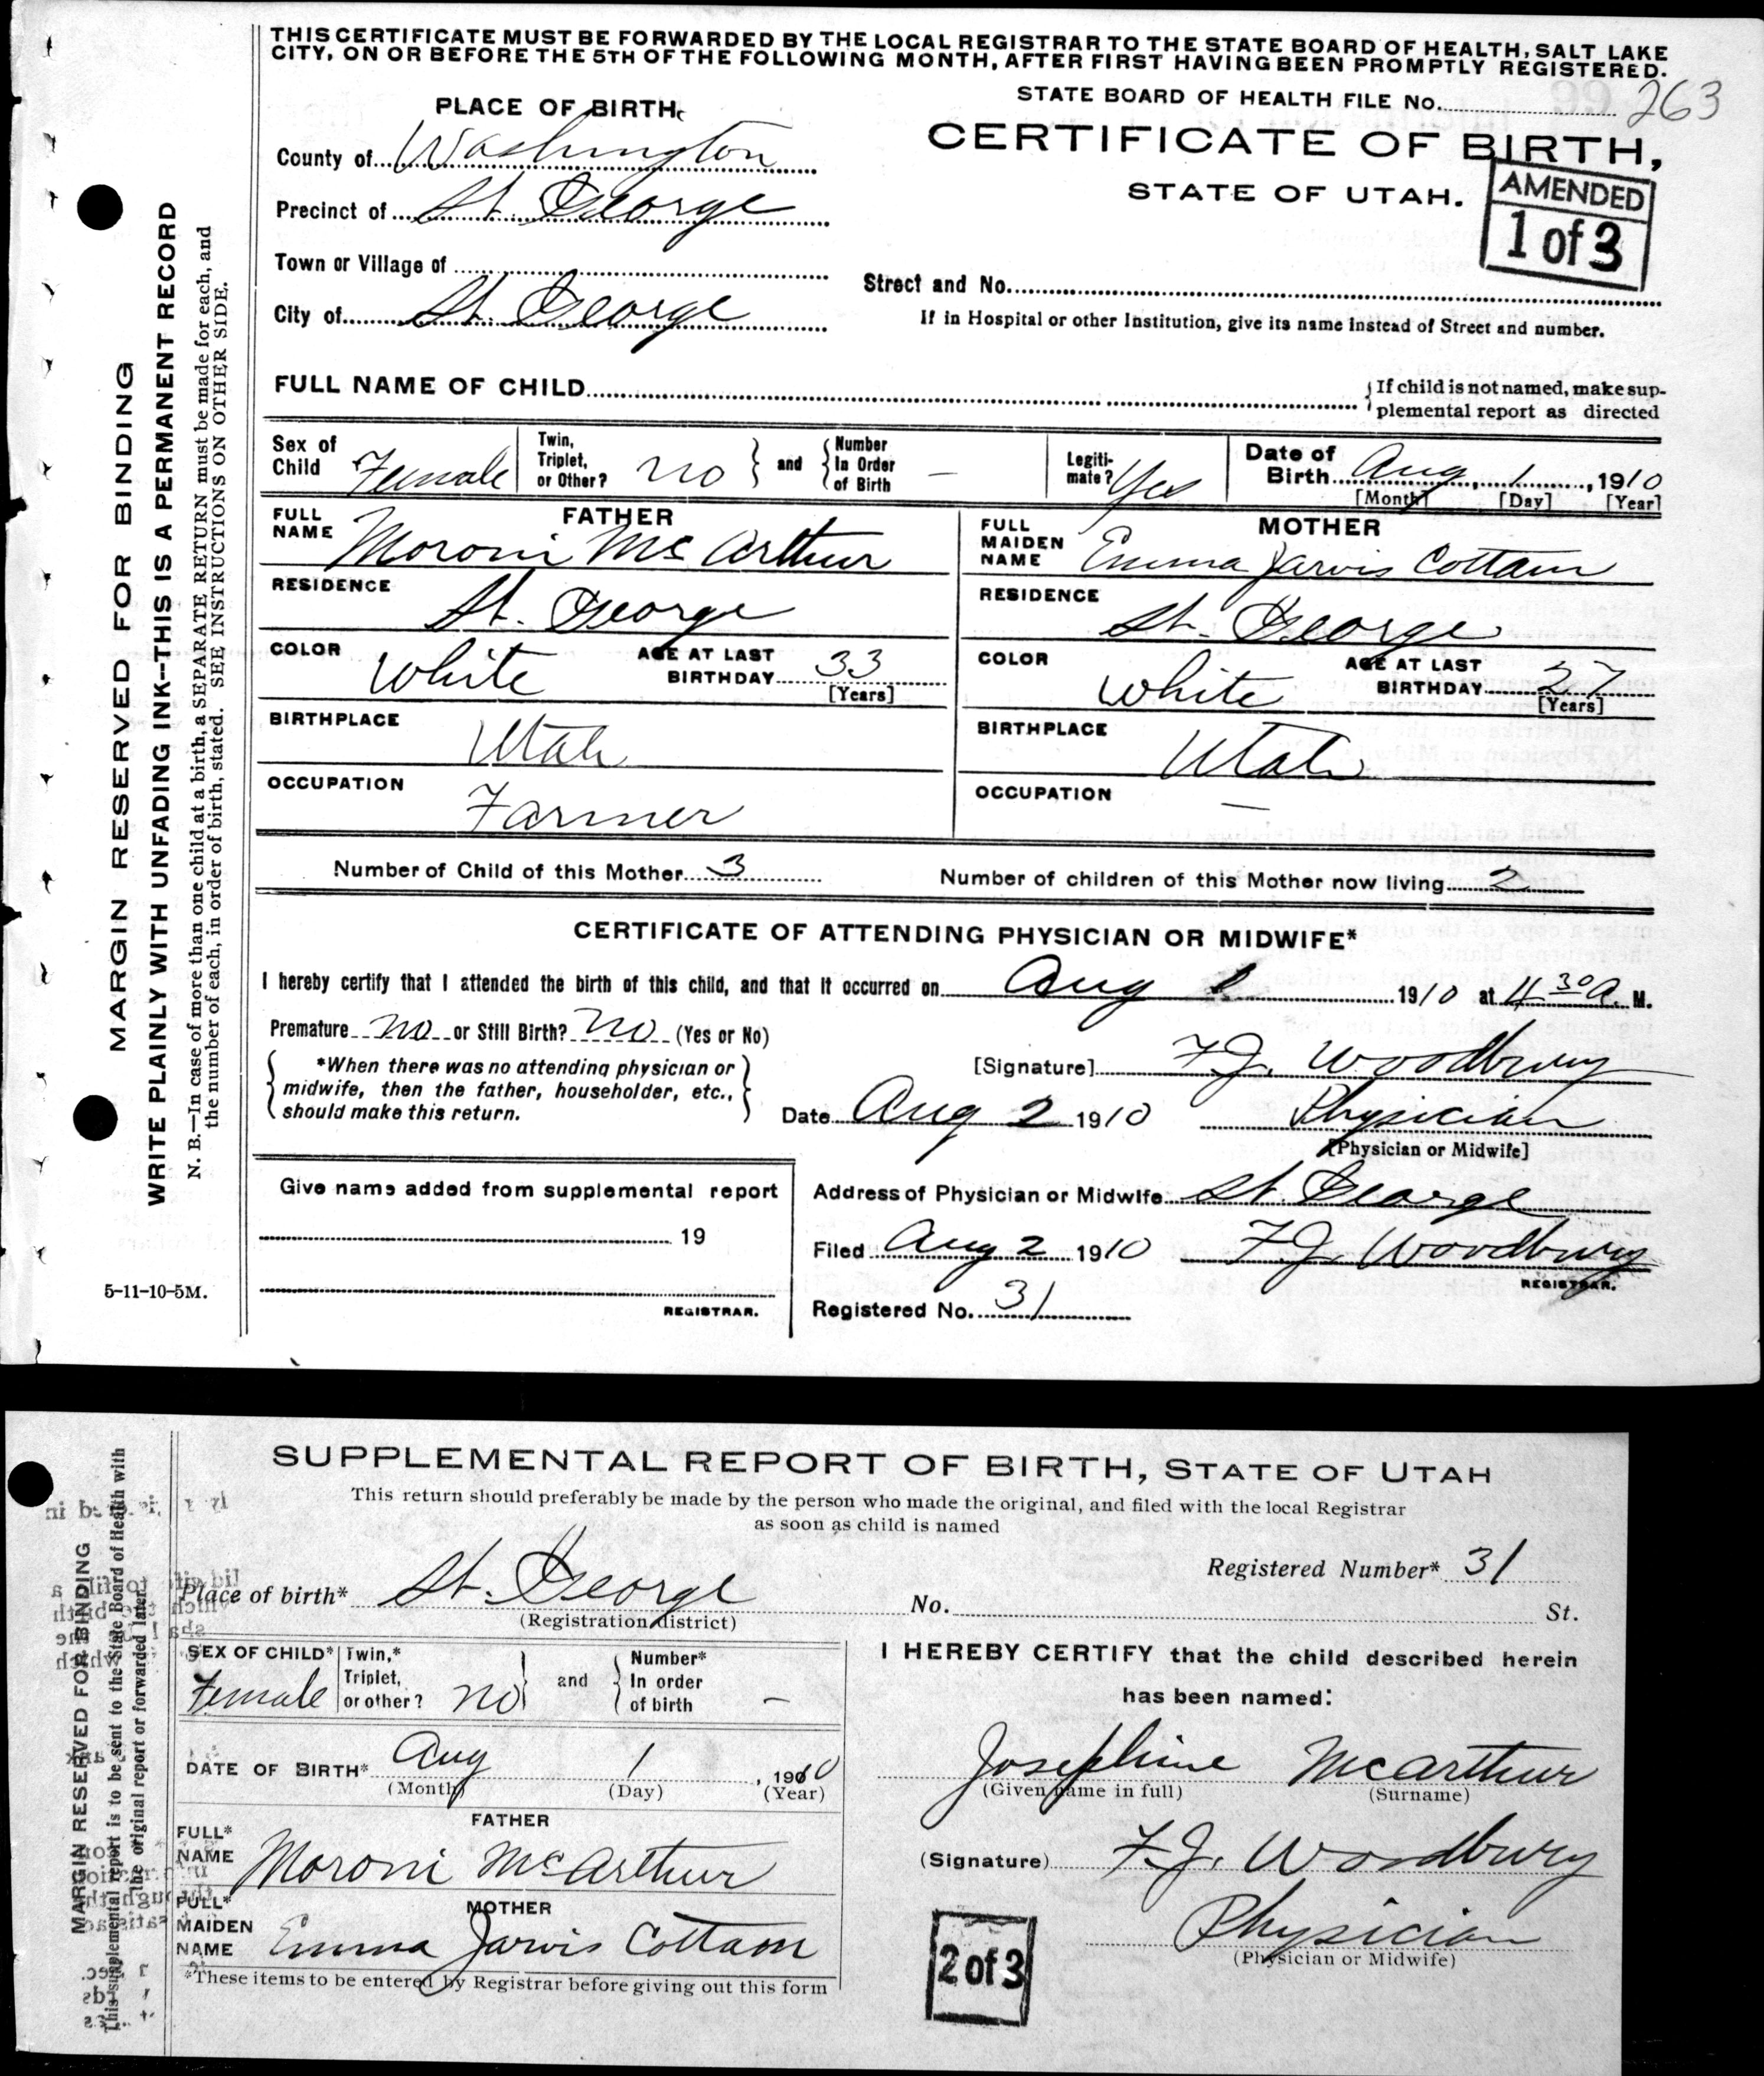 THIS CERTIFICATE MUST BE FORWARDED BY THE LOCAL REGISTRAR TO THE STATE BOARD OF HEALTH, SALT LAKE
CITY, ON OR BEFORE THE 5TH OF THE FOLLOWING MONTH, AFTER FIRST HAVING BEEN PROMPTLY REGISTERED.
STATE BOARD OF HEALTH FILE No. 263
CERTIFICATE OF BIRTH,
STATE OF UTAH.
AMENDED
1 of 3
PLACE OF BIRTH
County of Washington
Precinct of St. George
Town or Village of
City of St. George
Street and No.
If in Hospital or other Institution, give its name instead of Street and number.
FULL NAME OF CHILD
If child is not named, make sup-
plemental report as directed
Sex of Child Female
Twin, Triplet, or Other? no
and
Number In Order of Birth –
Legiti-mate? Yes
Date of Birth Aug 1, 1910
[Month] [Day] [Year]
FATHER
FULL NAME Moroni McArthur
RESIDENCE St. George
COLOR White AGE AT LAST BIRTHDAY 33
[Years]
BIRTHPLACE Utah
OCCUPATION Farmer
MOTHER
FULL MAIDEN NAME Emma Jarvis Cottam
RESIDENCE St. George
COLOR White AGE AT LAST BIRTHDAY 27
[Years]
BIRTHPLACE Utah
OCCUPATION —
Number of Child of this Mother 3 Number of children of this Mother now living 2
CERTIFICATE OF ATTENDING PHYSICIAN OR MIDWIFE*
I hereby certify that I attended the birth of this child, and that it occurred on Aug 1 1910 at 11 30 A. M.
Premature no or Still Birth? no (Yes or No)
*When there was no attending physician or
midwife, then the father, householder, etc.,
should make this return.
[Signature] F.J. Woodbury
Date Aug 2 1910 Physician
[Physician or Midwife]
Give name added from supplemental report
19
REGISTRAR.
Address of Physician or Midwife St. George
Filed Aug 2 1910 F.J. Woodbury
REGISTRAR.
Registered No. 31
MARGIN RESERVED FOR BINDING
WRITE PLAINLY WITH UNFADING INK--THIS IS A PERMANENT RECORD
N. B.—In case of more than one child at a birth, a SEPARATE RETURN must be made for each, and
the number of each, in order of birth, stated. SEE INSTRUCTIONS ON OTHER SIDE.
5-11-10-5M.
SUPPLEMENTAL REPORT OF BIRTH, STATE OF UTAH
This return should preferably be made by the person who made the original, and filed with the local Registrar
as soon as child is named
Registered Number* 31
Place of birth* St. George No. St.
(Registration district)
SEX OF CHILD* Female
Twin,* Triplet, or other? no
and
Number* In order of birth –
DATE OF BIRTH* Aug 1, 1910
(Month) (Day) (Year)
FATHER
FULL* NAME Moroni McArthur
MOTHER
FULL* MAIDEN NAME Emma Jarvis Cottam
*These items to be entered by Registrar before giving out this form
I HEREBY CERTIFY that the child described herein
has been named:
Josephine McArthur
(Given name in full) (Surname)
(Signature) F.J. Woodbury
Physician
(Physician or Midwife)
2 of 3
MARGIN RESERVED FOR BINDING
This supplemental report is to be sent to the State Board of Health with
the original report or forwarded later.